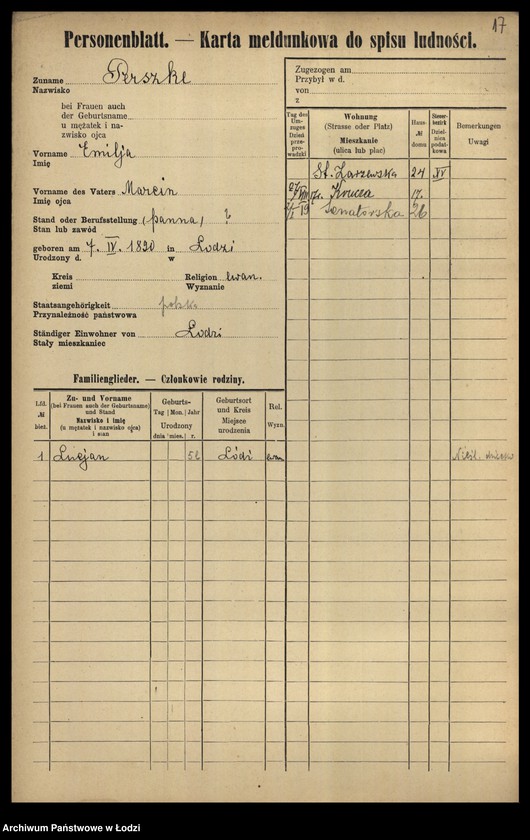 17
Personenblatt. — Karta meldunkowa do spisu ludności.
Zuname Perszke
Nazwisko
bei Frauen auch
der Geburtsname
u mężatek i na-
zwisko ojca
Vorname Emilja
Imię
Vorname des Vaters Marcin
Imię ojca
Stand oder Berufsstellung (panna) ?
Stan lub zawód
geboren am 7. IV. 1890 in Lodzi
Urodzony d. w
Kreis Religion ewan.
ziemi Wyznanie
Staatsangehörigkeit polska
Przynależność państwowa
Ständiger Einwohner von Lodzi
Stały mieszkaniec
Zugezogen am
Przybył w d.
von
z
Tag des Um-zuges Dzień prze-pro-wadzki
Wohnung
(Strasse oder Platz)
Mieszkanie
(ulica lub plac)
Haus-
№
domu
Steuer-
bezirk
Dziel-
nica
podat-
kowa
Bemerkungen
Uwagi
St. Zarzewska 24 XV
Krucza 17.
19 Senatorska 26
Familienglieder. — Członkowie rodziny.
Lfd.
№
bież.
Zu- und Vorname
(bei Frauen auch der Geburtsname)
und Stand
Nazwisko i imię
(u mężatek i nazwisko ojca)
i stan
Geburts-
Tag Mon. Jahr
Urodzony
dnia mies. r.
Geburtsort
und Kreis
Miejsce
urodzenia
Rel.
Wyzn.
1 Lucjan Łódź ewan
Archiwum Państwowe w Łodzi